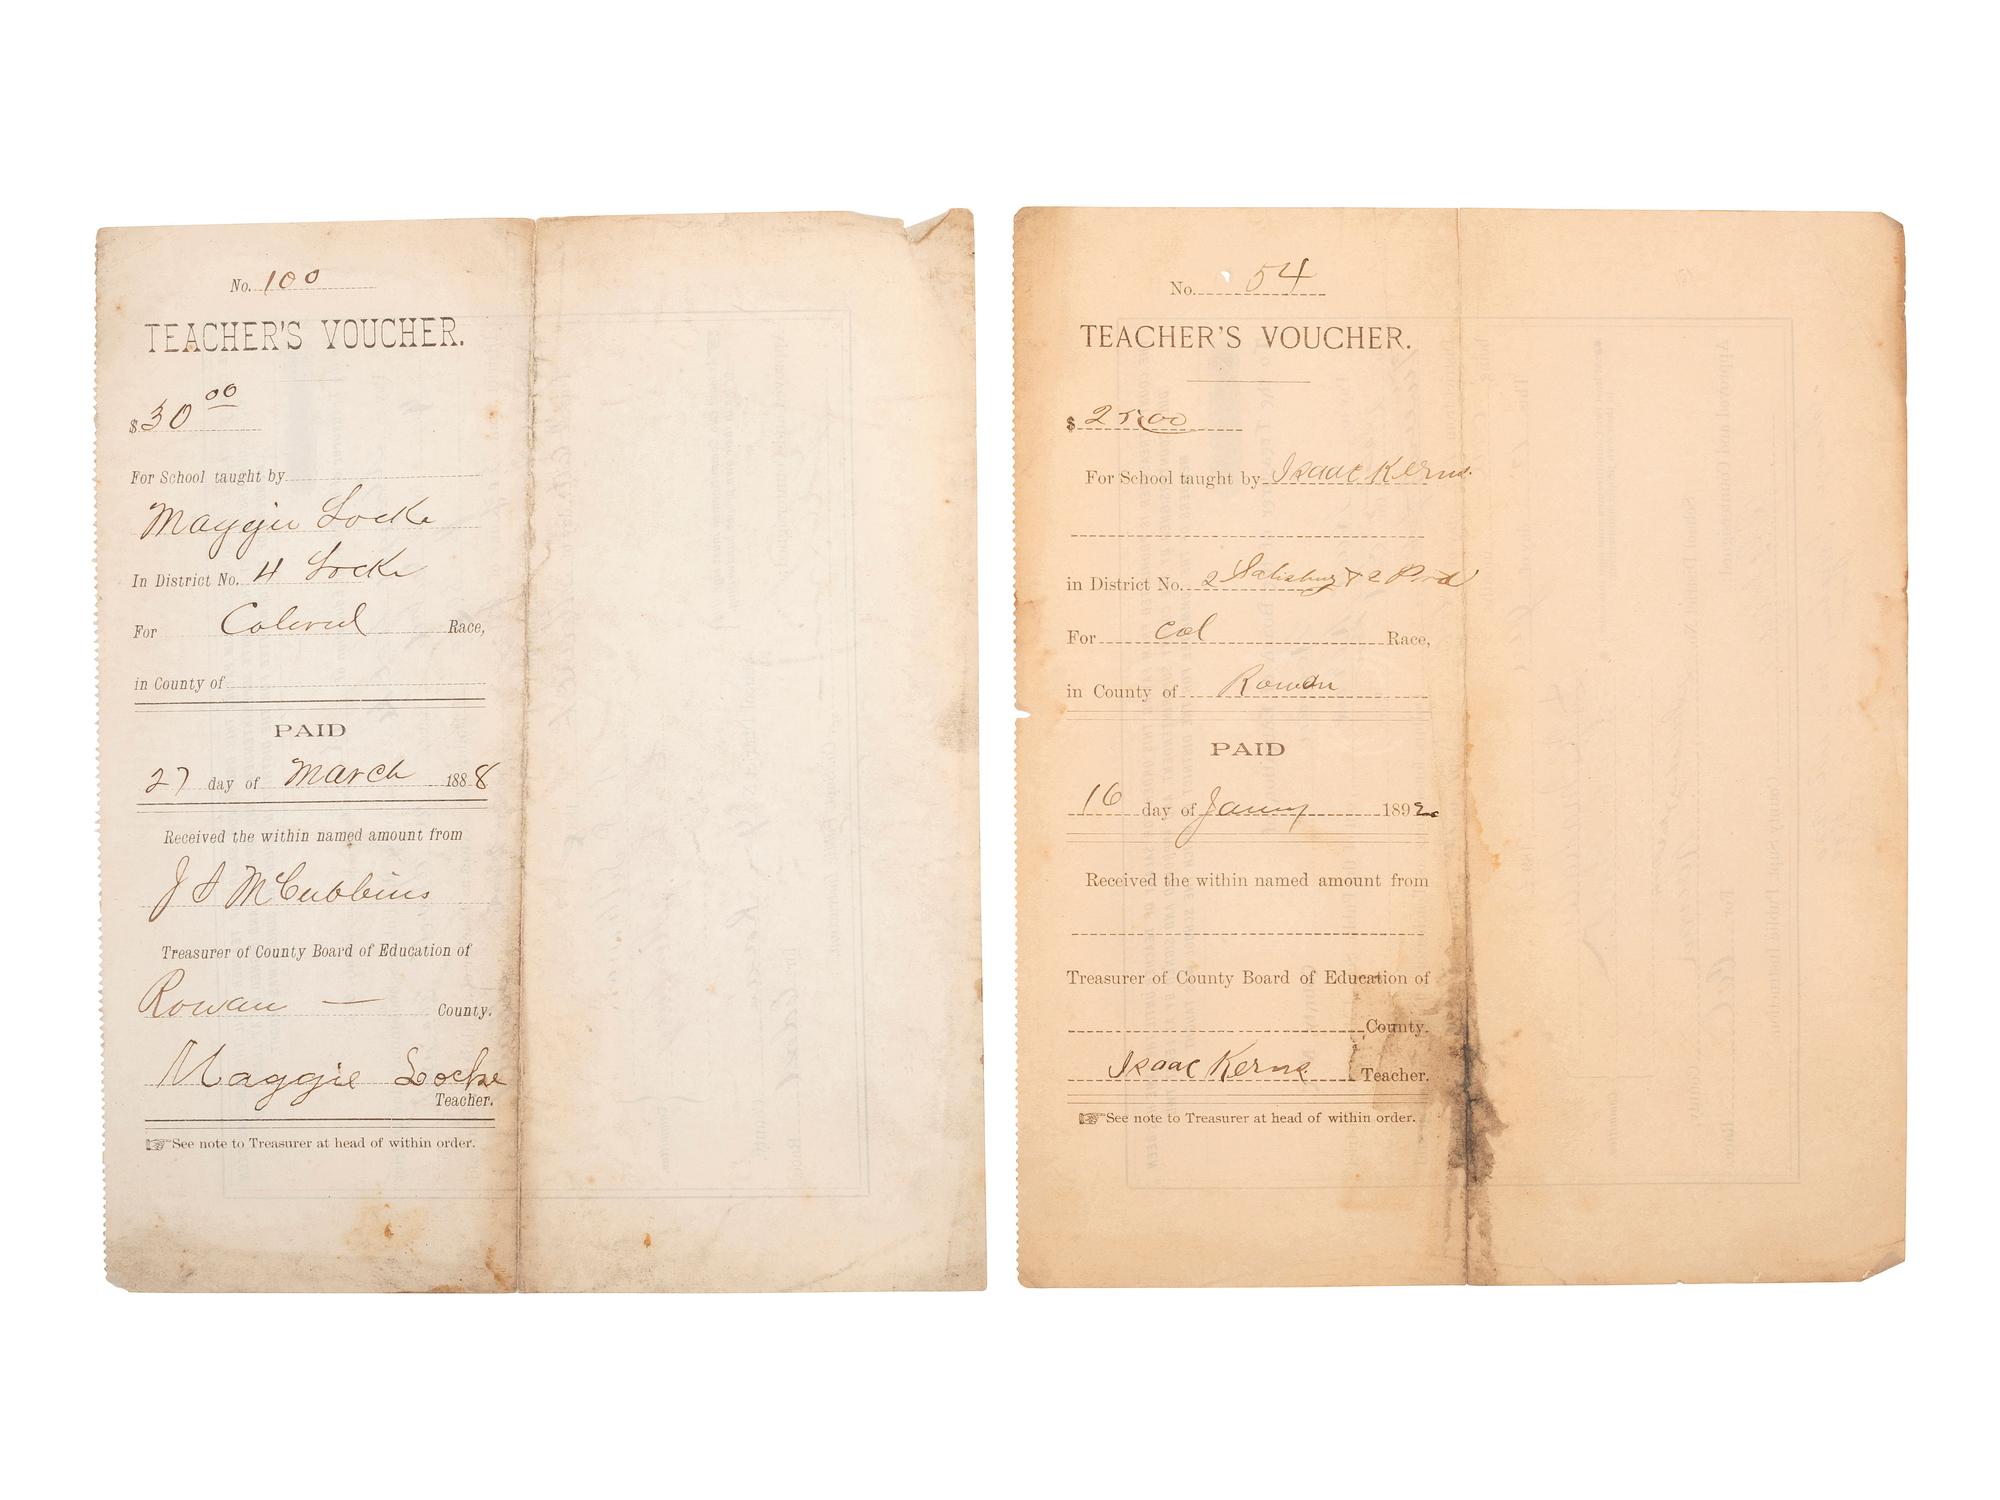 No. 100
TEACHER'S VOUCHER.
$30 00
For School taught by
Maggie Locke
In District No. 4 Locke
For Colored Race,
in County of
PAID
27 day of March 1888
Received the within named amount from
J S McCubbins
Treasurer of County Board of Education of
Rowan — County.
Maggie Locke
Teacher.
☞See note to Treasurer at head of within order.
No. 54
TEACHER'S VOUCHER.
$ 25.00
For School taught by Isaac Kerns.
in District No. 2 Salisbury & 2
For Col Race,
in County of Rowan
PAID
16 day of Janry 1892
Received the within named amount from
Treasurer of County Board of Education of
County.
Isaac Kerns. Teacher.
☞See note to Treasurer at head of within order.